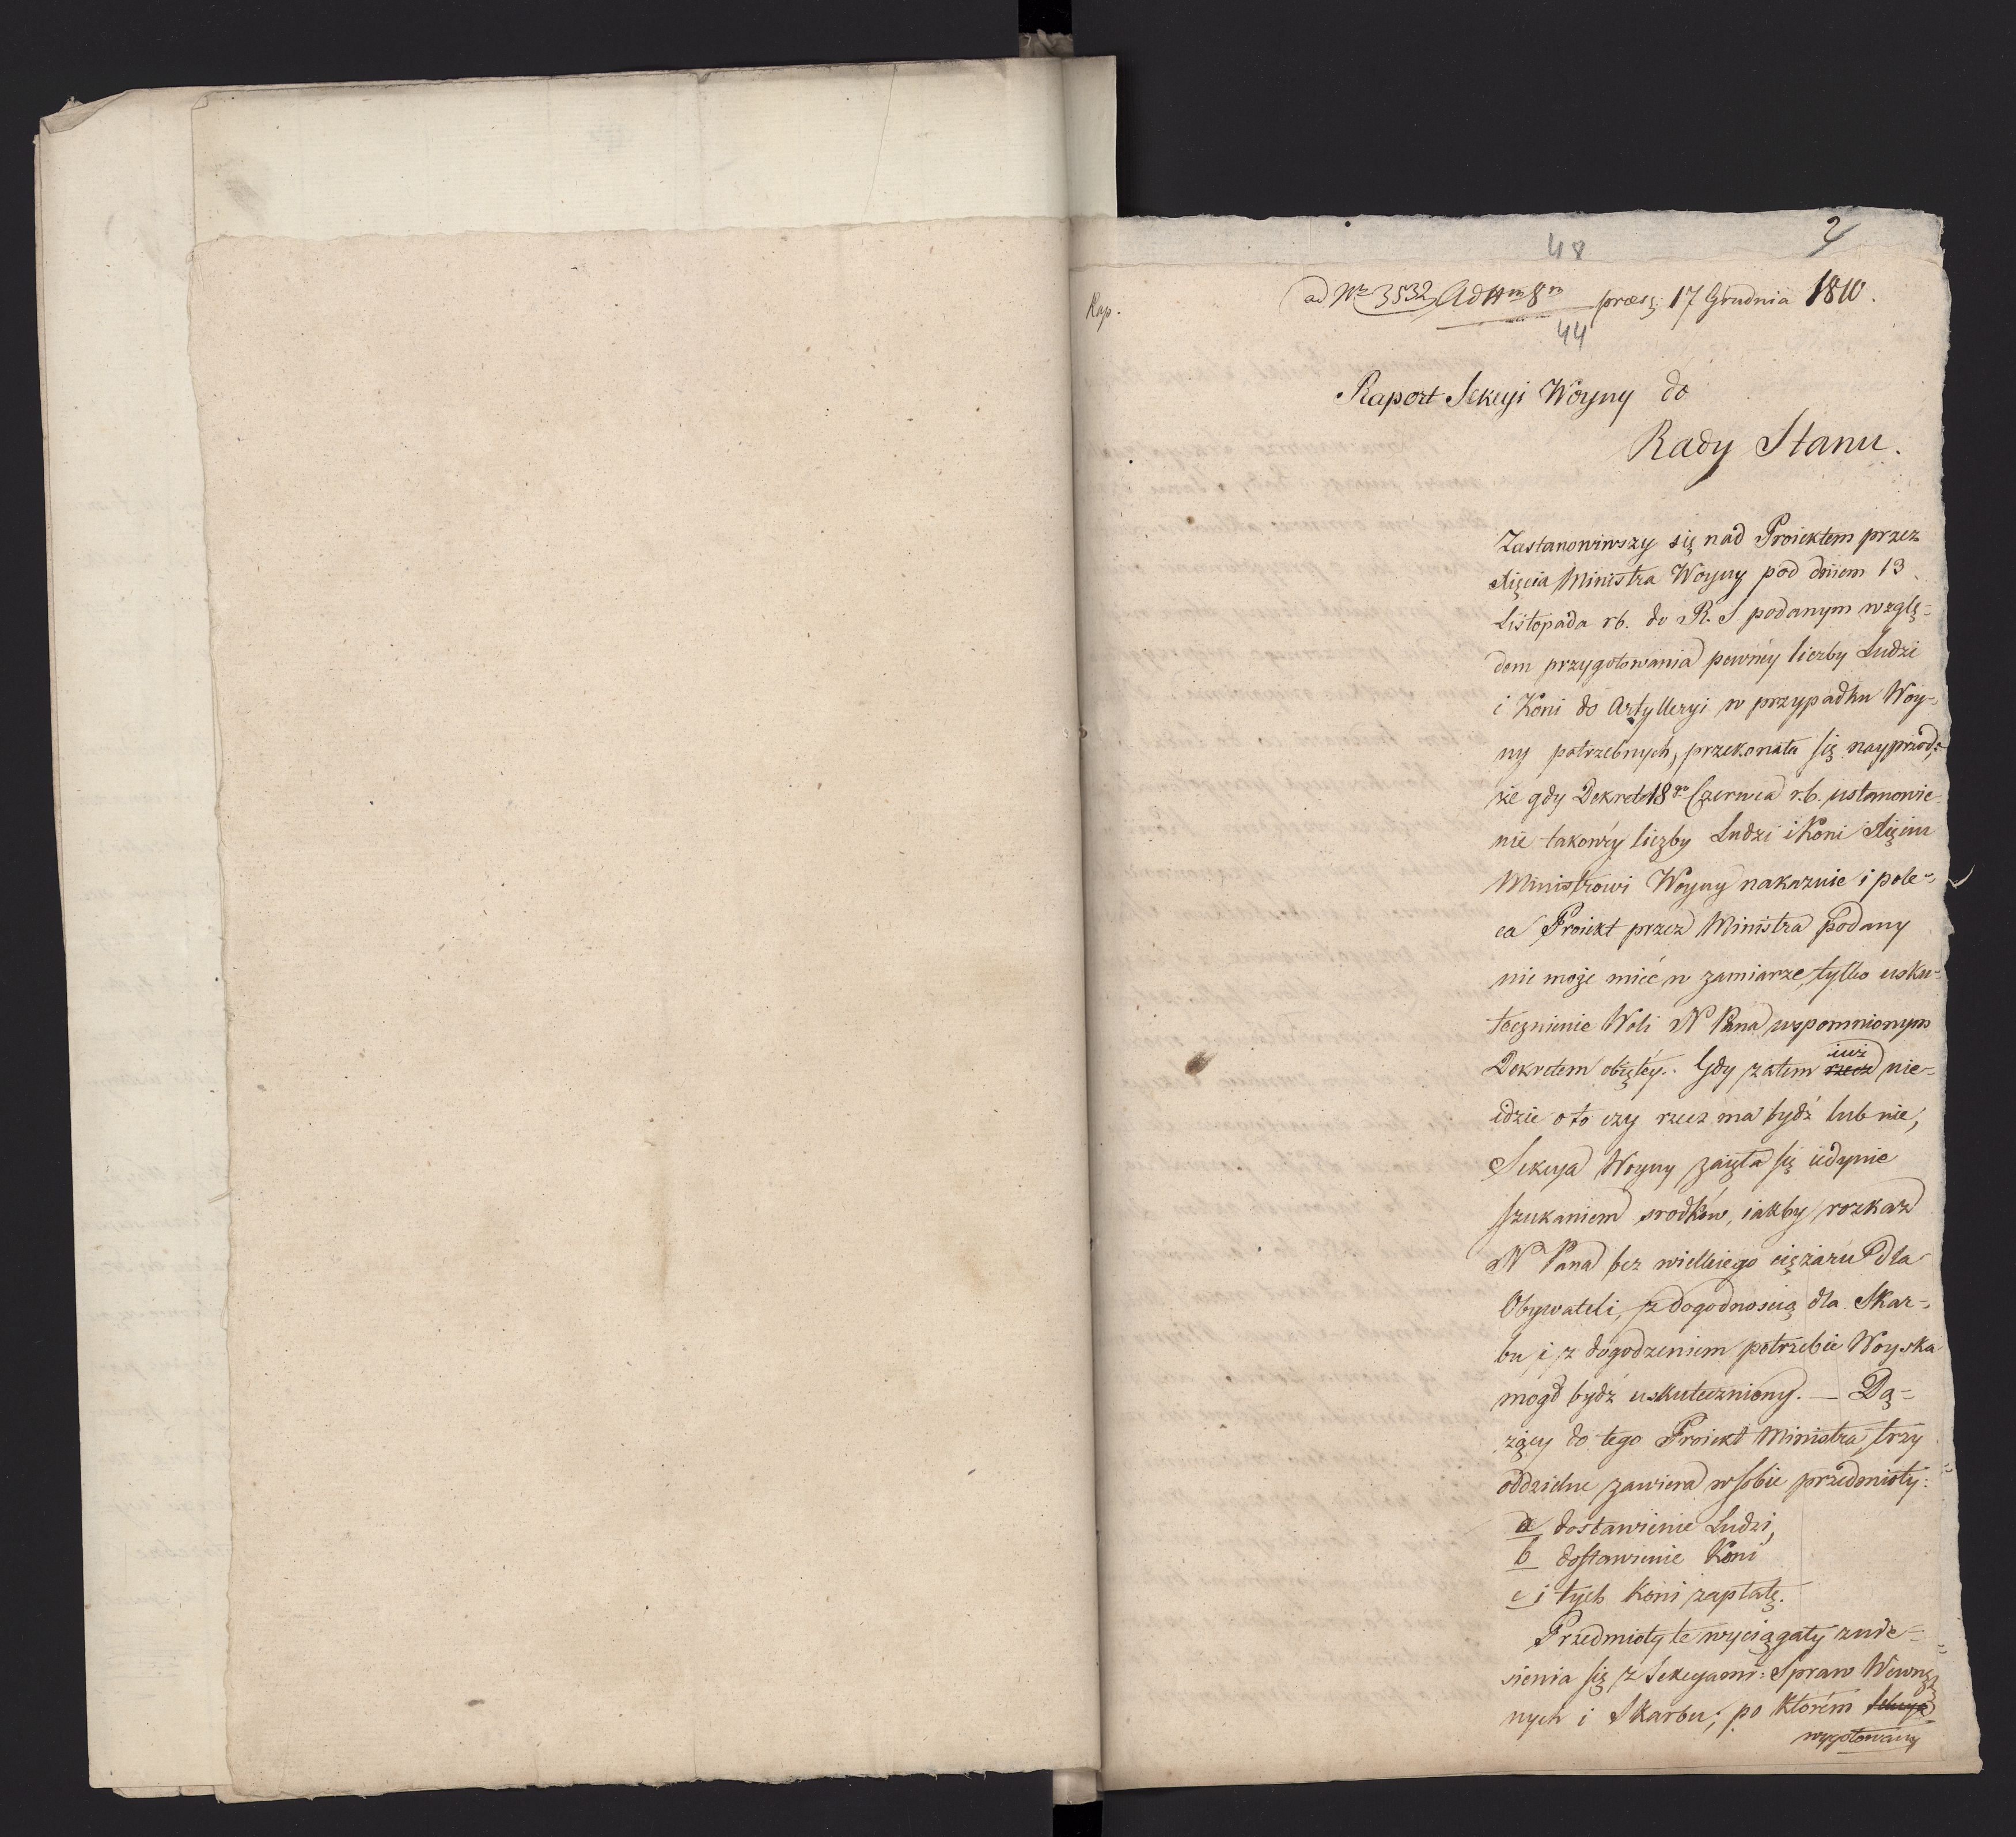 2
48
ad Nr 3532 Ad Hm 8m praes: 17 Grudnia 1810.
44
Rap.
Raport Sekcyi Woyny do
Rady Stanu.
Zastanowiwszy się nad Proiektem przez
Xięcia Ministra Woyny pod dniem 13
Listopada rb. do R. S podanym wzglę-
dem przygotowania pewnéy liczby Ludzi
i Koni do Artylleryi w przypadku Woy-
ny potrzebnych, przekonała się nayprzód;
że gdy Dekret 18go Czerwca r.b. ustanowie-
nie takowéy liczby Ludzi i Koni Xięciu
Ministrowi Woyny nakazuie i pole-
ca Proiekt przez Ministra podany
nie może mieć w zamiarze, tylko usku-
tecznienie Woli N Pana wspomnionym
Dekretem obiętéy. Gdy zatem rzecz iuż nie-
idzie o to czy rzecz ma bydź lub nie,
Sekcya Woyny zaięła się iedynie
szukaniem srodków, iakby rozkaz
N Pana bez wielkiego ciężaru dla
Obywateli, z dogodnoscią dla Skar-
bu i z dogodzeniem potrzebie Woyska
mogł bydź uskuteczniony. — Dą-
żący do tego Proiekt Ministra, trzy
oddzielne zawiera w sobie przedmioty:
a dostawienie Ludzi,
b dostawienie Koni
c i tych Koni zapłatę.
Przedmioty te wyciągały znie-
sienia się z Sekcyami: Spraw Wewnętrz
nych i Skarbu; po którém Sekcya
wygotowany